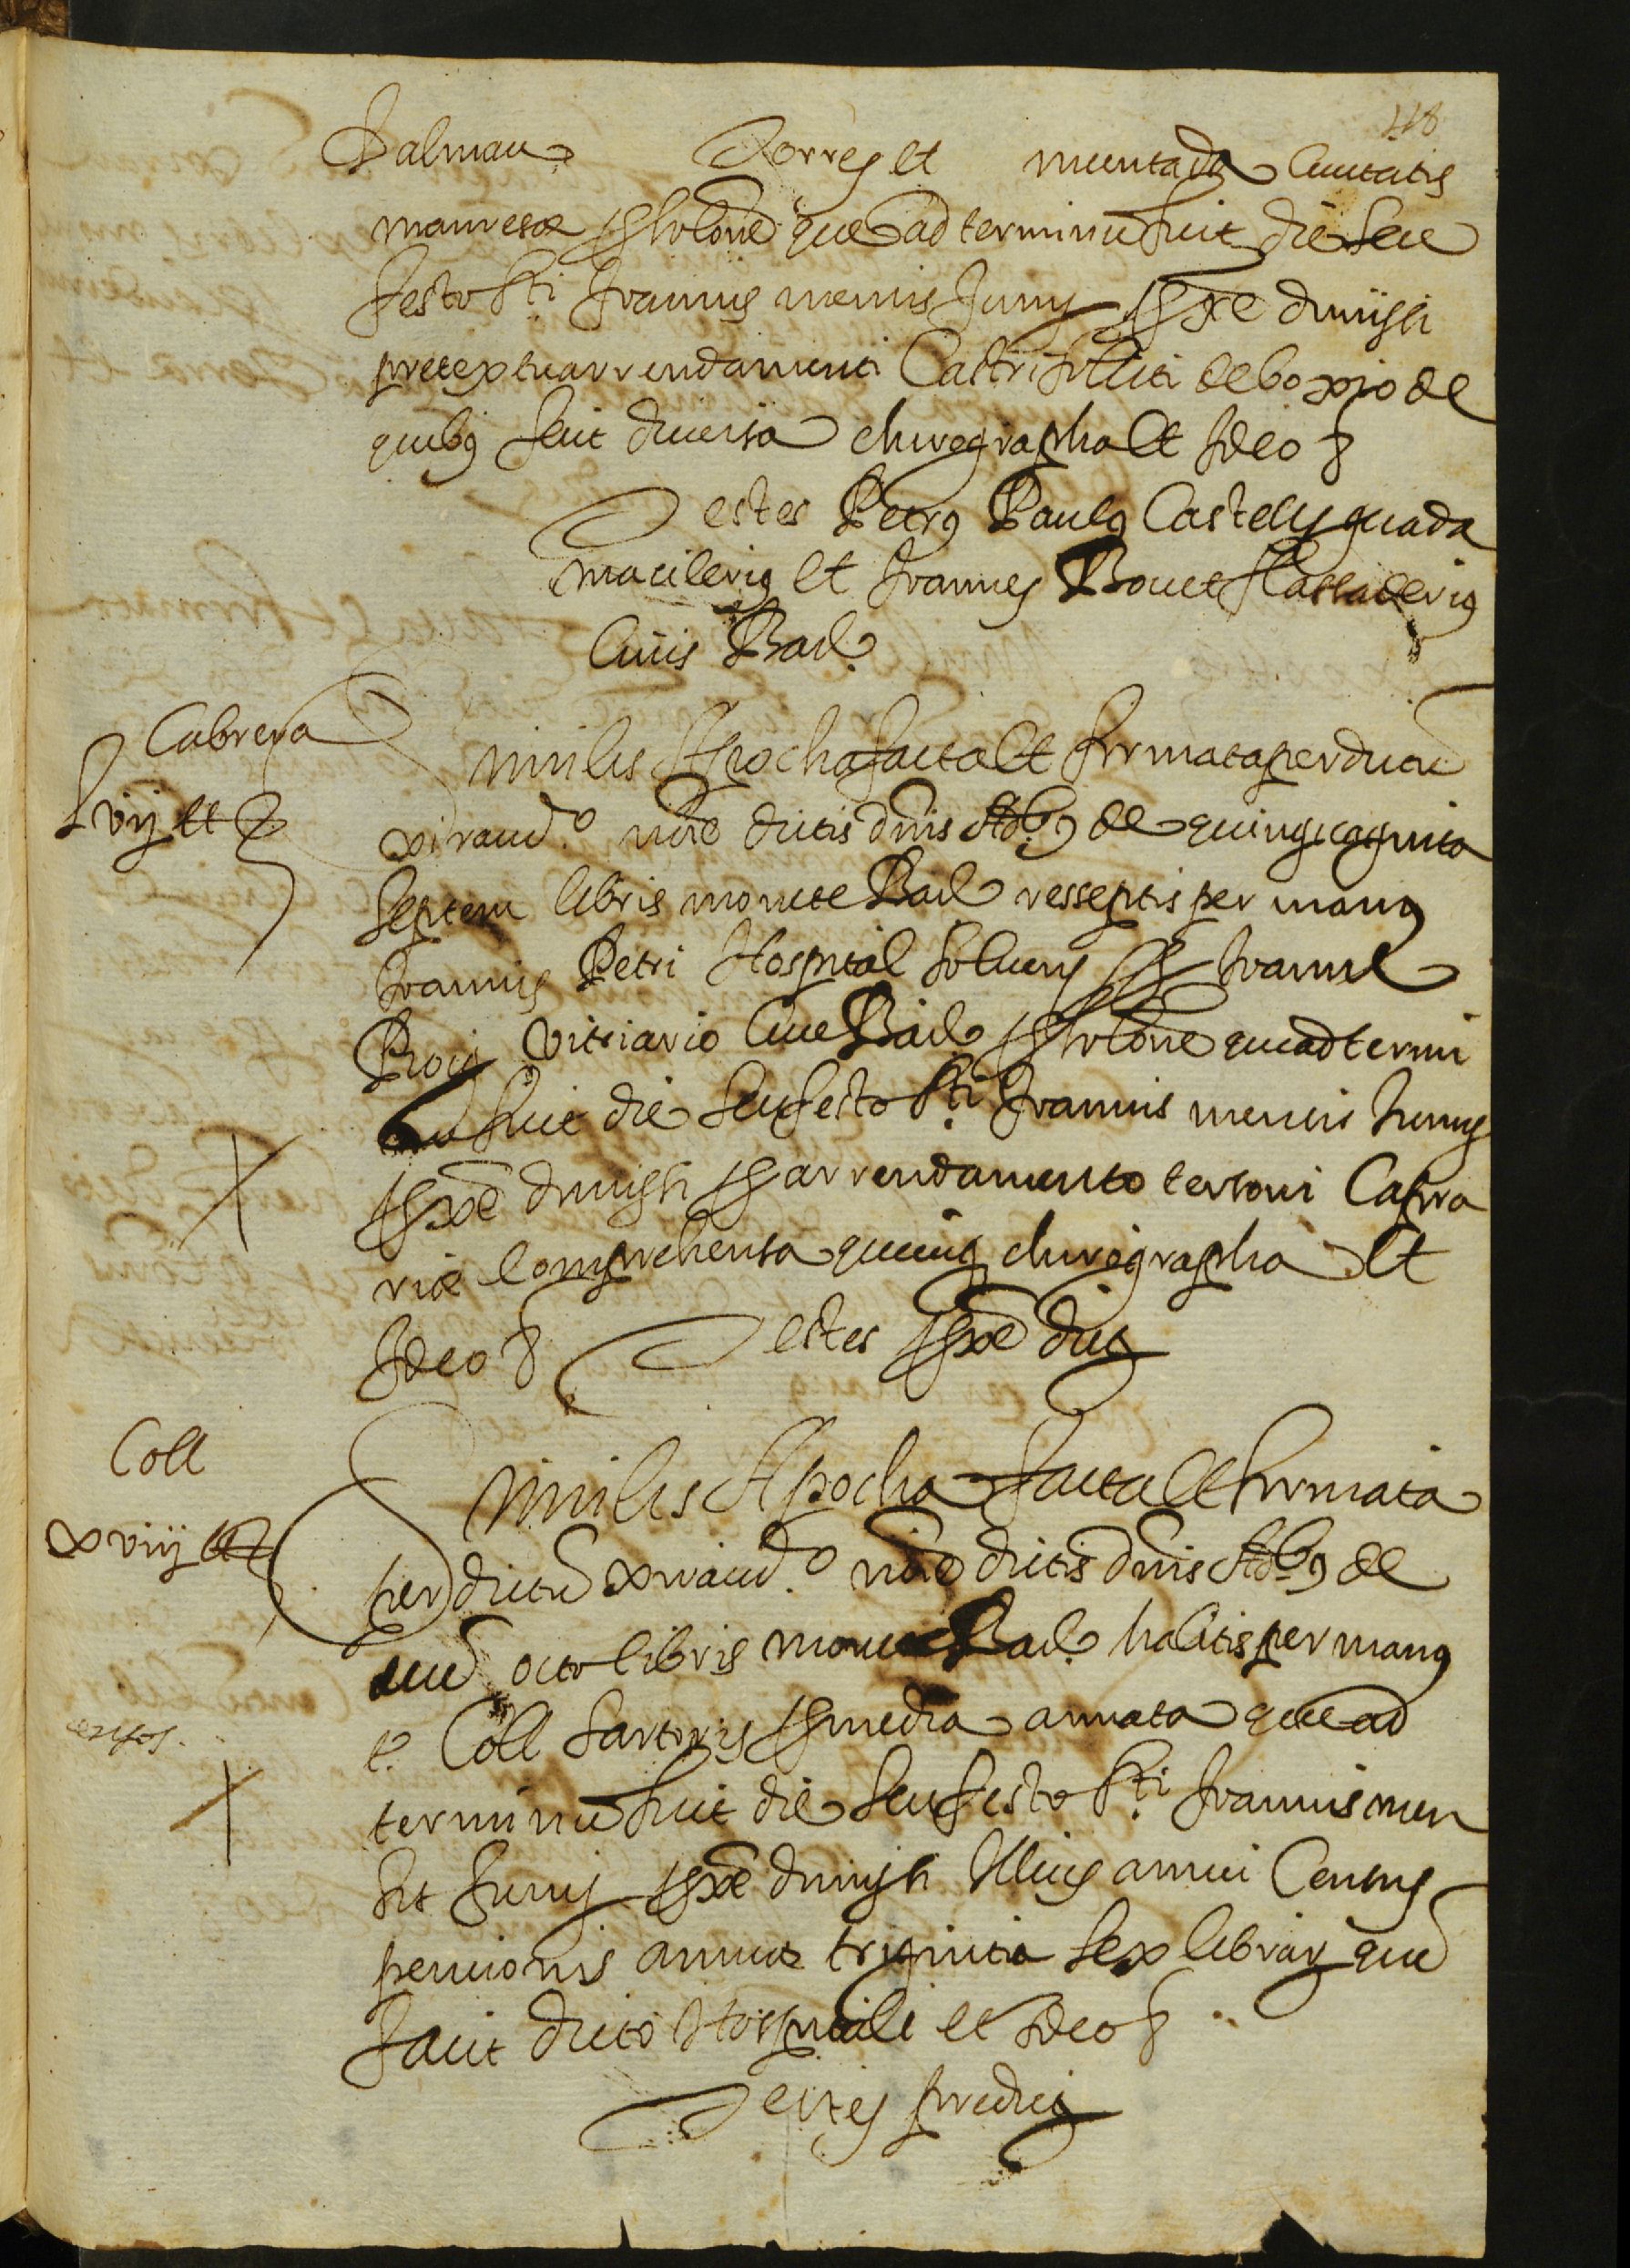 118
Dalmau Torres et muntada Civitatis
manresæ p solone que ad terminu fuit die seu
festo Sti Joannis mensis Junij pxe dmissi
pretextu arrendamenti Castri fruiti de boxio de
quibus fuit diversa chirographa Et Ideo &
Testes Petrus Paulus Castells guada
macilerius et Joannes Bovet flassaderius
Cives Bar.
Cabrera
Lvij ll
Similis Apocha facta et firmata per dictu
xiraud.º nõe dictis dnis Adb9 de quinquaginta
septem libris monete Bar resseptis per manus
Joannis Petri Hospital solvens p Joanne
Roig vitriario Cive Bar p solone que ad termi
nu fuit die seu festo Sti Joannis mensis Junij
pxe dmissi p arrendamento tersoni Capra
riæ comprehensa quavis chirographa Et
Ideo & Testes pxe dicti
Coll
xviij ll
Similis Apocha facta et firmata
per dictu xiraud.º nõe dictis dnis Adb9 de
octo libris monete Bar. habitis per manus
t. Coll sartoris p media annata que ad
terminu fuit die seu festo Sti Joannis men
sis Junij pxe dmissi Illius annui Census
pencionis annue triginta sex librar que
facit dicto Hospitali et Ideo &
Testes predicti